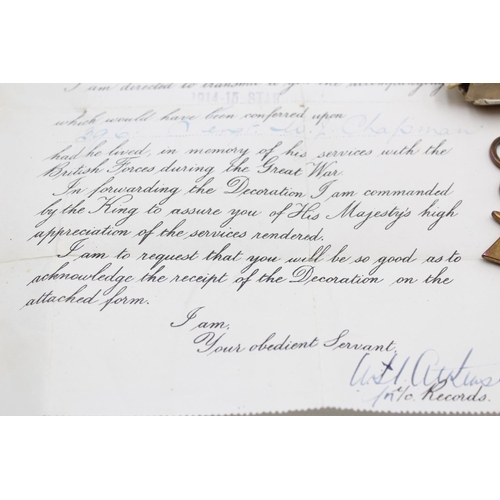 I am directed to transmit to you the accompanying
1914-15 STAR
which would have been conferred upon
Chapman
had he lived, in memory of his services with the
British Forces during the Great War.
In forwarding the Decoration I am commanded
by the King to assure you of His Majesty's high
appreciation of the services rendered.
I am to request that you will be so good as to
acknowledge the receipt of the Decoration on the
attached form.
I am,
Your obedient Servant,
i/c Records.